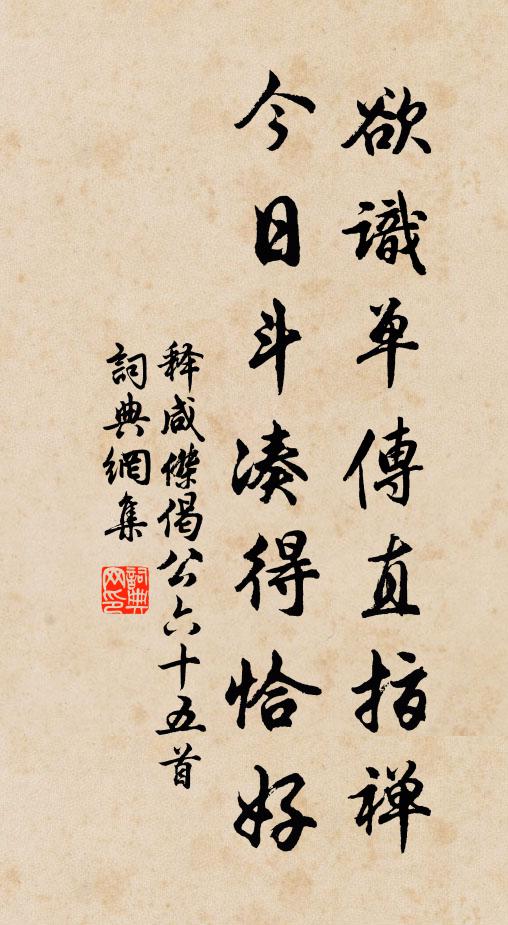 欲識单傳直指禅
今日斗凑得恰好
释咸傑偈公六十五首
詞典網集
詞典网印